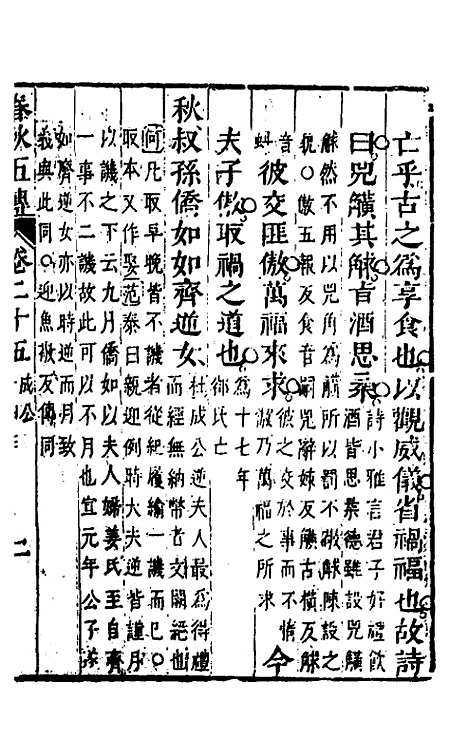 亡乎古之爲享食也以觀威儀省禍福也故詩
曰兕觵其觩旨酒思柔詩小雅言君子好禮飲
酒皆思柔德雖設兕觵
觩然不用以兕角爲觵所以罰不敬觩陳設之
貌○傲五報反食音嗣兕辭姊反觵古橫反觩
音
蚪彼交匪傲萬福來求彼之交於事而不惰
傲乃萬福之所求今
夫子傲取禍之道也爲十七年
郤氏亡
秋叔孫僑如如齊逆女杜成公逆夫人最爲得禮
而經無納幣者文闕絕也
何凡取早晚皆不譏者從紀履緰一譏而已○
取本又作娶范泰曰親迎例時大夫逆皆謹月
以譏之下云九月僑如以夫人婦姜氏至自齊
一事不二譏故此可以不月也宜元年公子遂
如齊逆女亦以時逆而月致
義與此同○迎魚敬反傳同
春秋五傳 卷二十五 成公